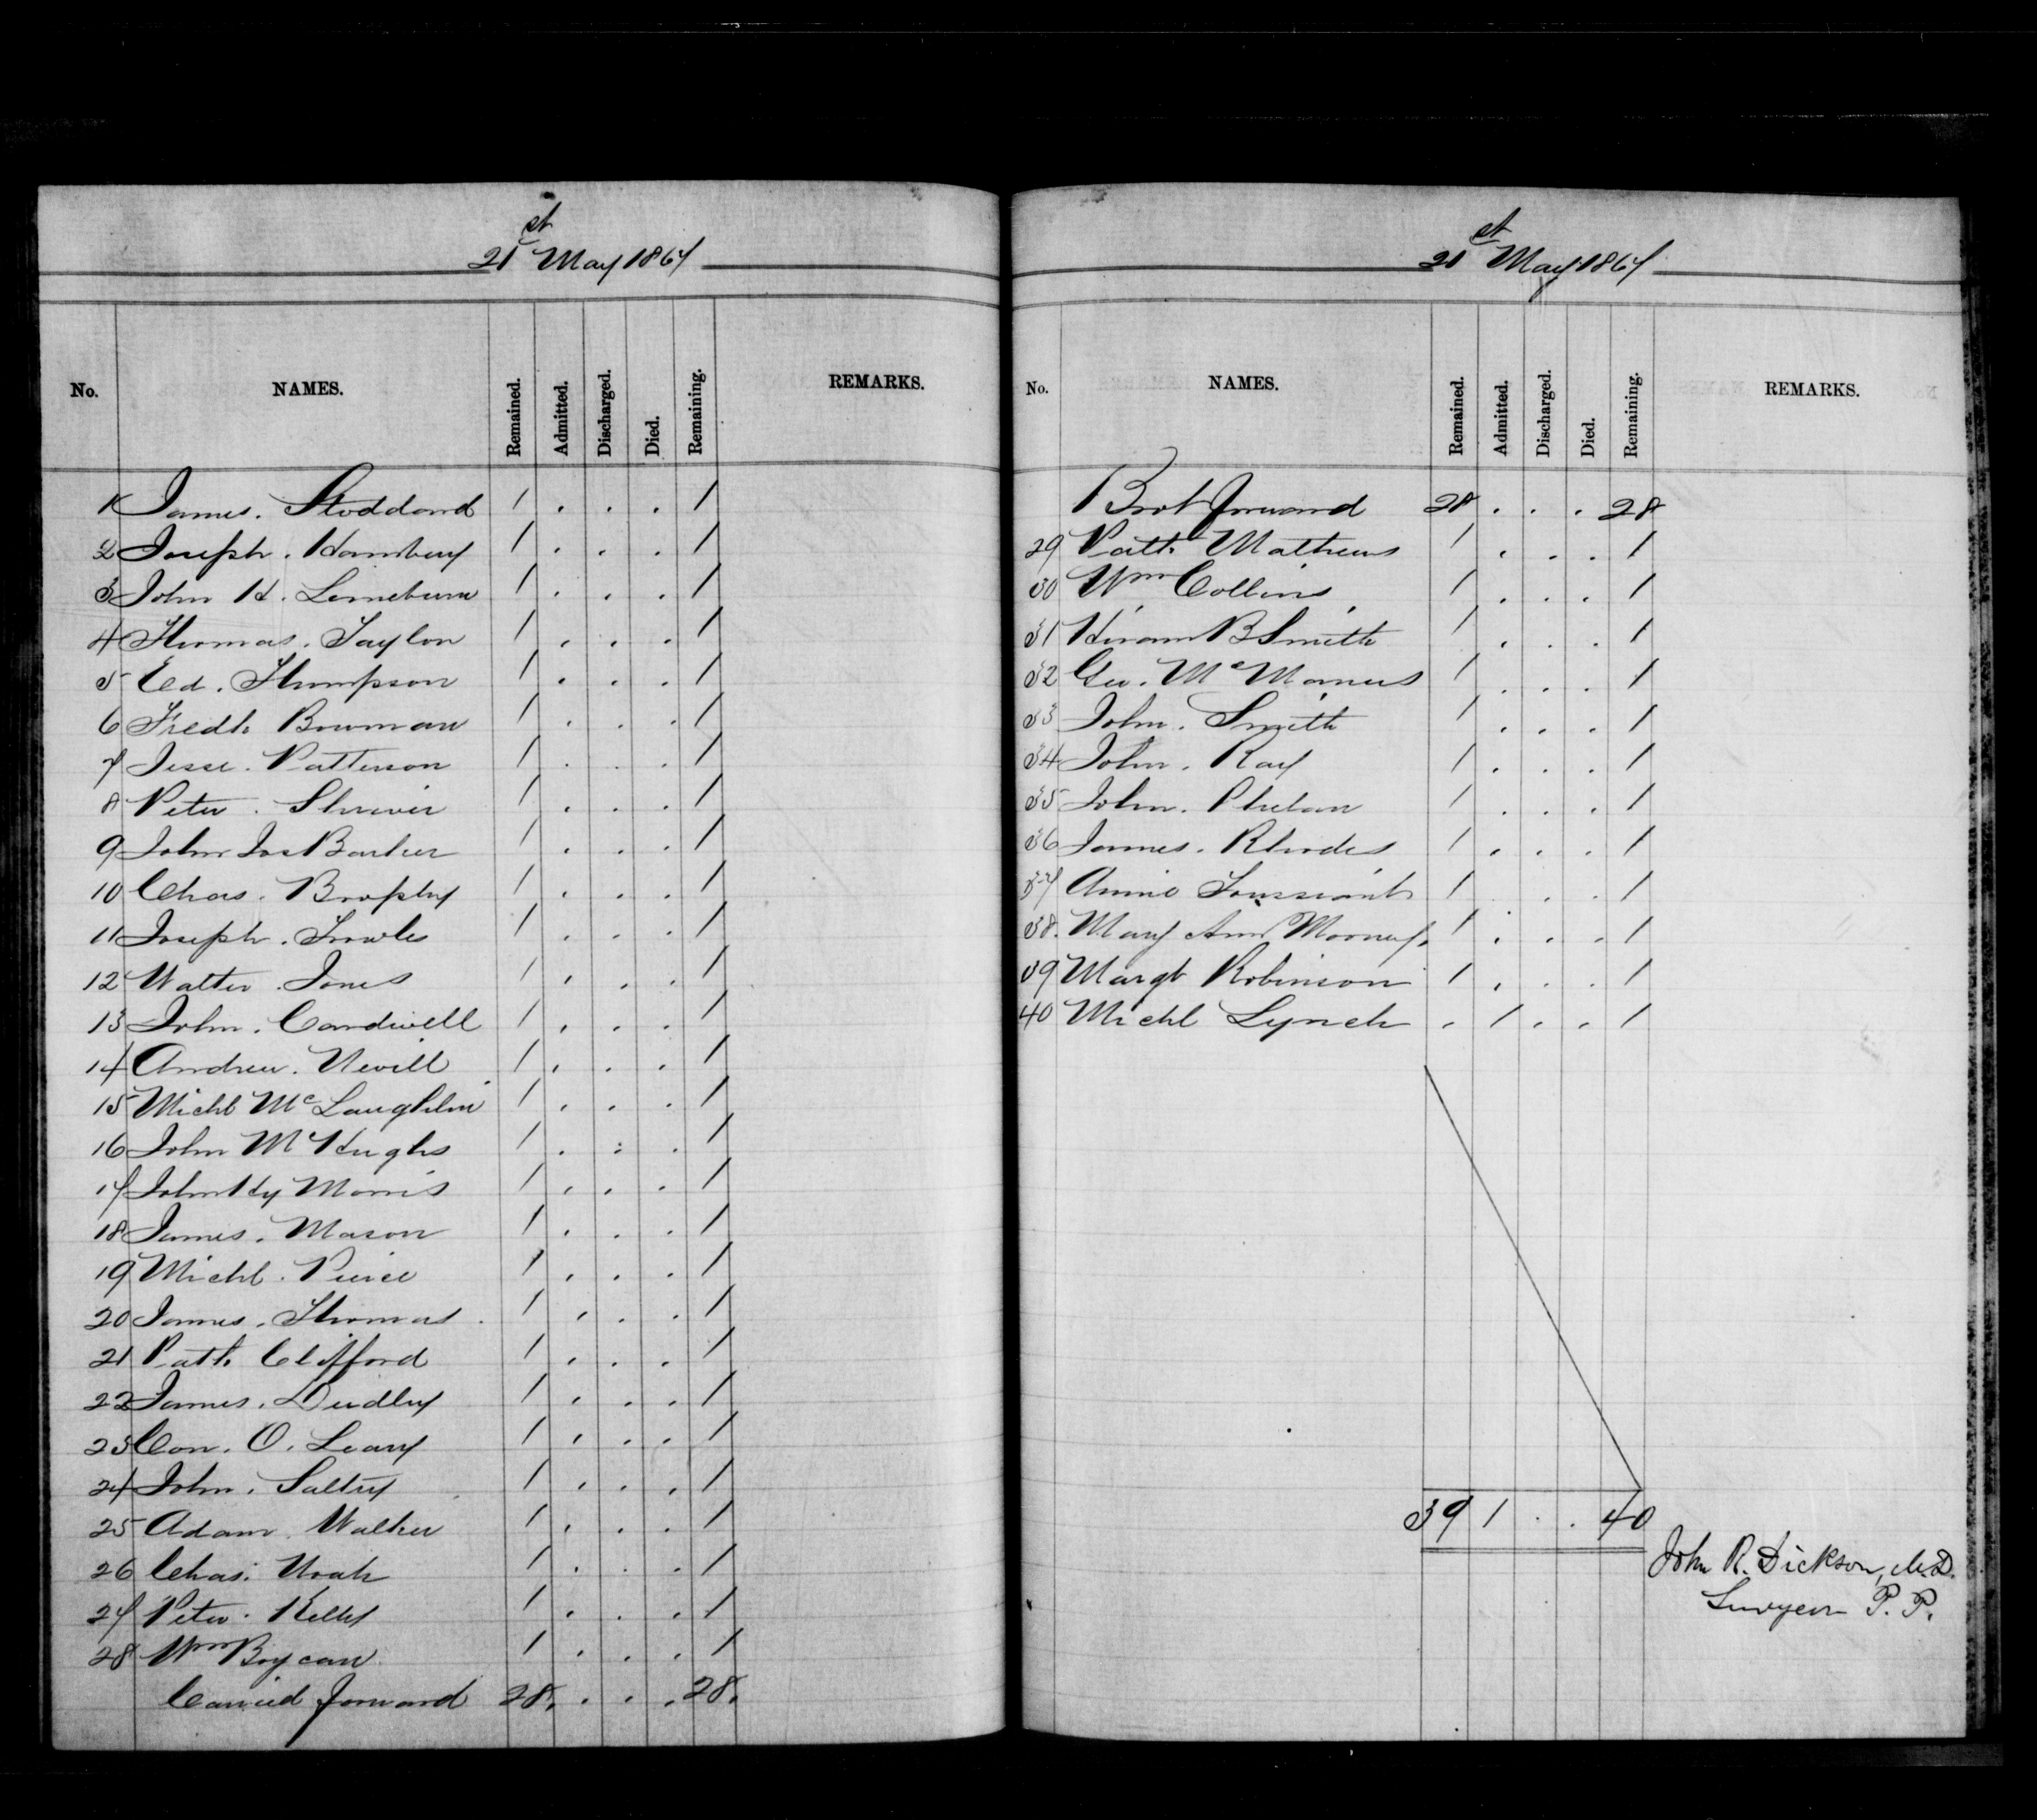 21st May 1867
No. NAMES. Remained. Admitted. Discharged. Died. Remaining. REMARKS.
1 James. Stoddard 1 . . . 1
2 Joseph. Hambury 1 . . . 1
3 John H. 1 . . . 1
4 Thomas. Taylor 1 . . . 1
5 Ed. Thompson 1 . . . 1
6 Fredk Bowman 1 . . . 1
7 Jesse. Patterson 1 . . . 1
8 Peter. 1 . . . 1
9 John Jos Barker 1 . . . 1
10 Chas. Brophy 1 . . . 1
11 Joseph. Fowles 1 . . . 1
12 Walter. Jones 1 . . . 1
13 John. Cardwell 1 . . . 1
14 Andrew. Nevill 1 . . . 1
15 Michl McLaughlin 1 . . . 1
16 John McHughs 1 . . . 1
17 John Hy Morris 1 . . . 1
18 James. Mason 1 . . . 1
19 Michl. Peirce 1 . . . 1
20 James. Thomas. 1 . . . 1
21 Patk Clifford 1 . . . 1
22 James. Dudley 1 . . . 1
23 Con. O. Leary 1 . . . 1
24 John. Saltry 1 . . . 1
25 Adam. Walker 1 . . . 1
26 Chas. Noah 1 . . . 1
27 Peter. Kelly 1 . . . 1
28 Wm 1 . . . 1
Carried forward 28. . . . 28.
21st May 1867
No. NAMES. Remained. Admitted. Discharged. Died. Remaining. REMARKS.
Brot forward 28 . . . 28
29 Patk Mathews 1 . . . 1
30 Wm Collins 1 . . . 1
31 Hiram B Smith 1 . . . 1
32 Geo. McManus 1 . . . 1
33 John. Smith 1 . . . 1
34 John. Ray 1 . . . 1
35 John. Phelan 1 . . . 1
36 James. Rhodes 1 . . . 1
37 Annie Toussaint 1 . . . 1
38. Mary Ann Mooney. 1 . . . 1
39 Margt Robinson 1 . . . 1
40 Michl Lynch . 1 . . 1
39 1 . . 40
John R. Dickson, M.D.
Surgeon P. P.